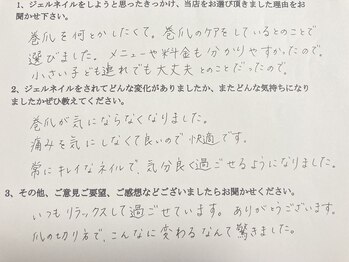 1、ジェルネイルをしようと思ったきっかけ、当店をお選び頂きました理由をお
聞かせ下さい。
巻爪を何とかしたくて。巻爪のケアをしているとのことで
選びました。メニューや料金も分かりやすかったので。
小さい子ども連れでも大丈夫とのことだったので。
2、ジェルネイルをされてどんな変化がありましたか、またどんな気持ちになり
ましたかぜひ教えてください。
巻爪が気にならなくなりました。
痛みを気にしなくて良いので快適です。
常にキレイなネイルで、気分良く過ごせるようになりました。
3、その他、ご意見ご要望、ご感想などございましたらお聞かせください。
いつもリラックスして過ごせています。ありがとうございます。
爪の切り方で、こんなに変わるなんて驚きました。